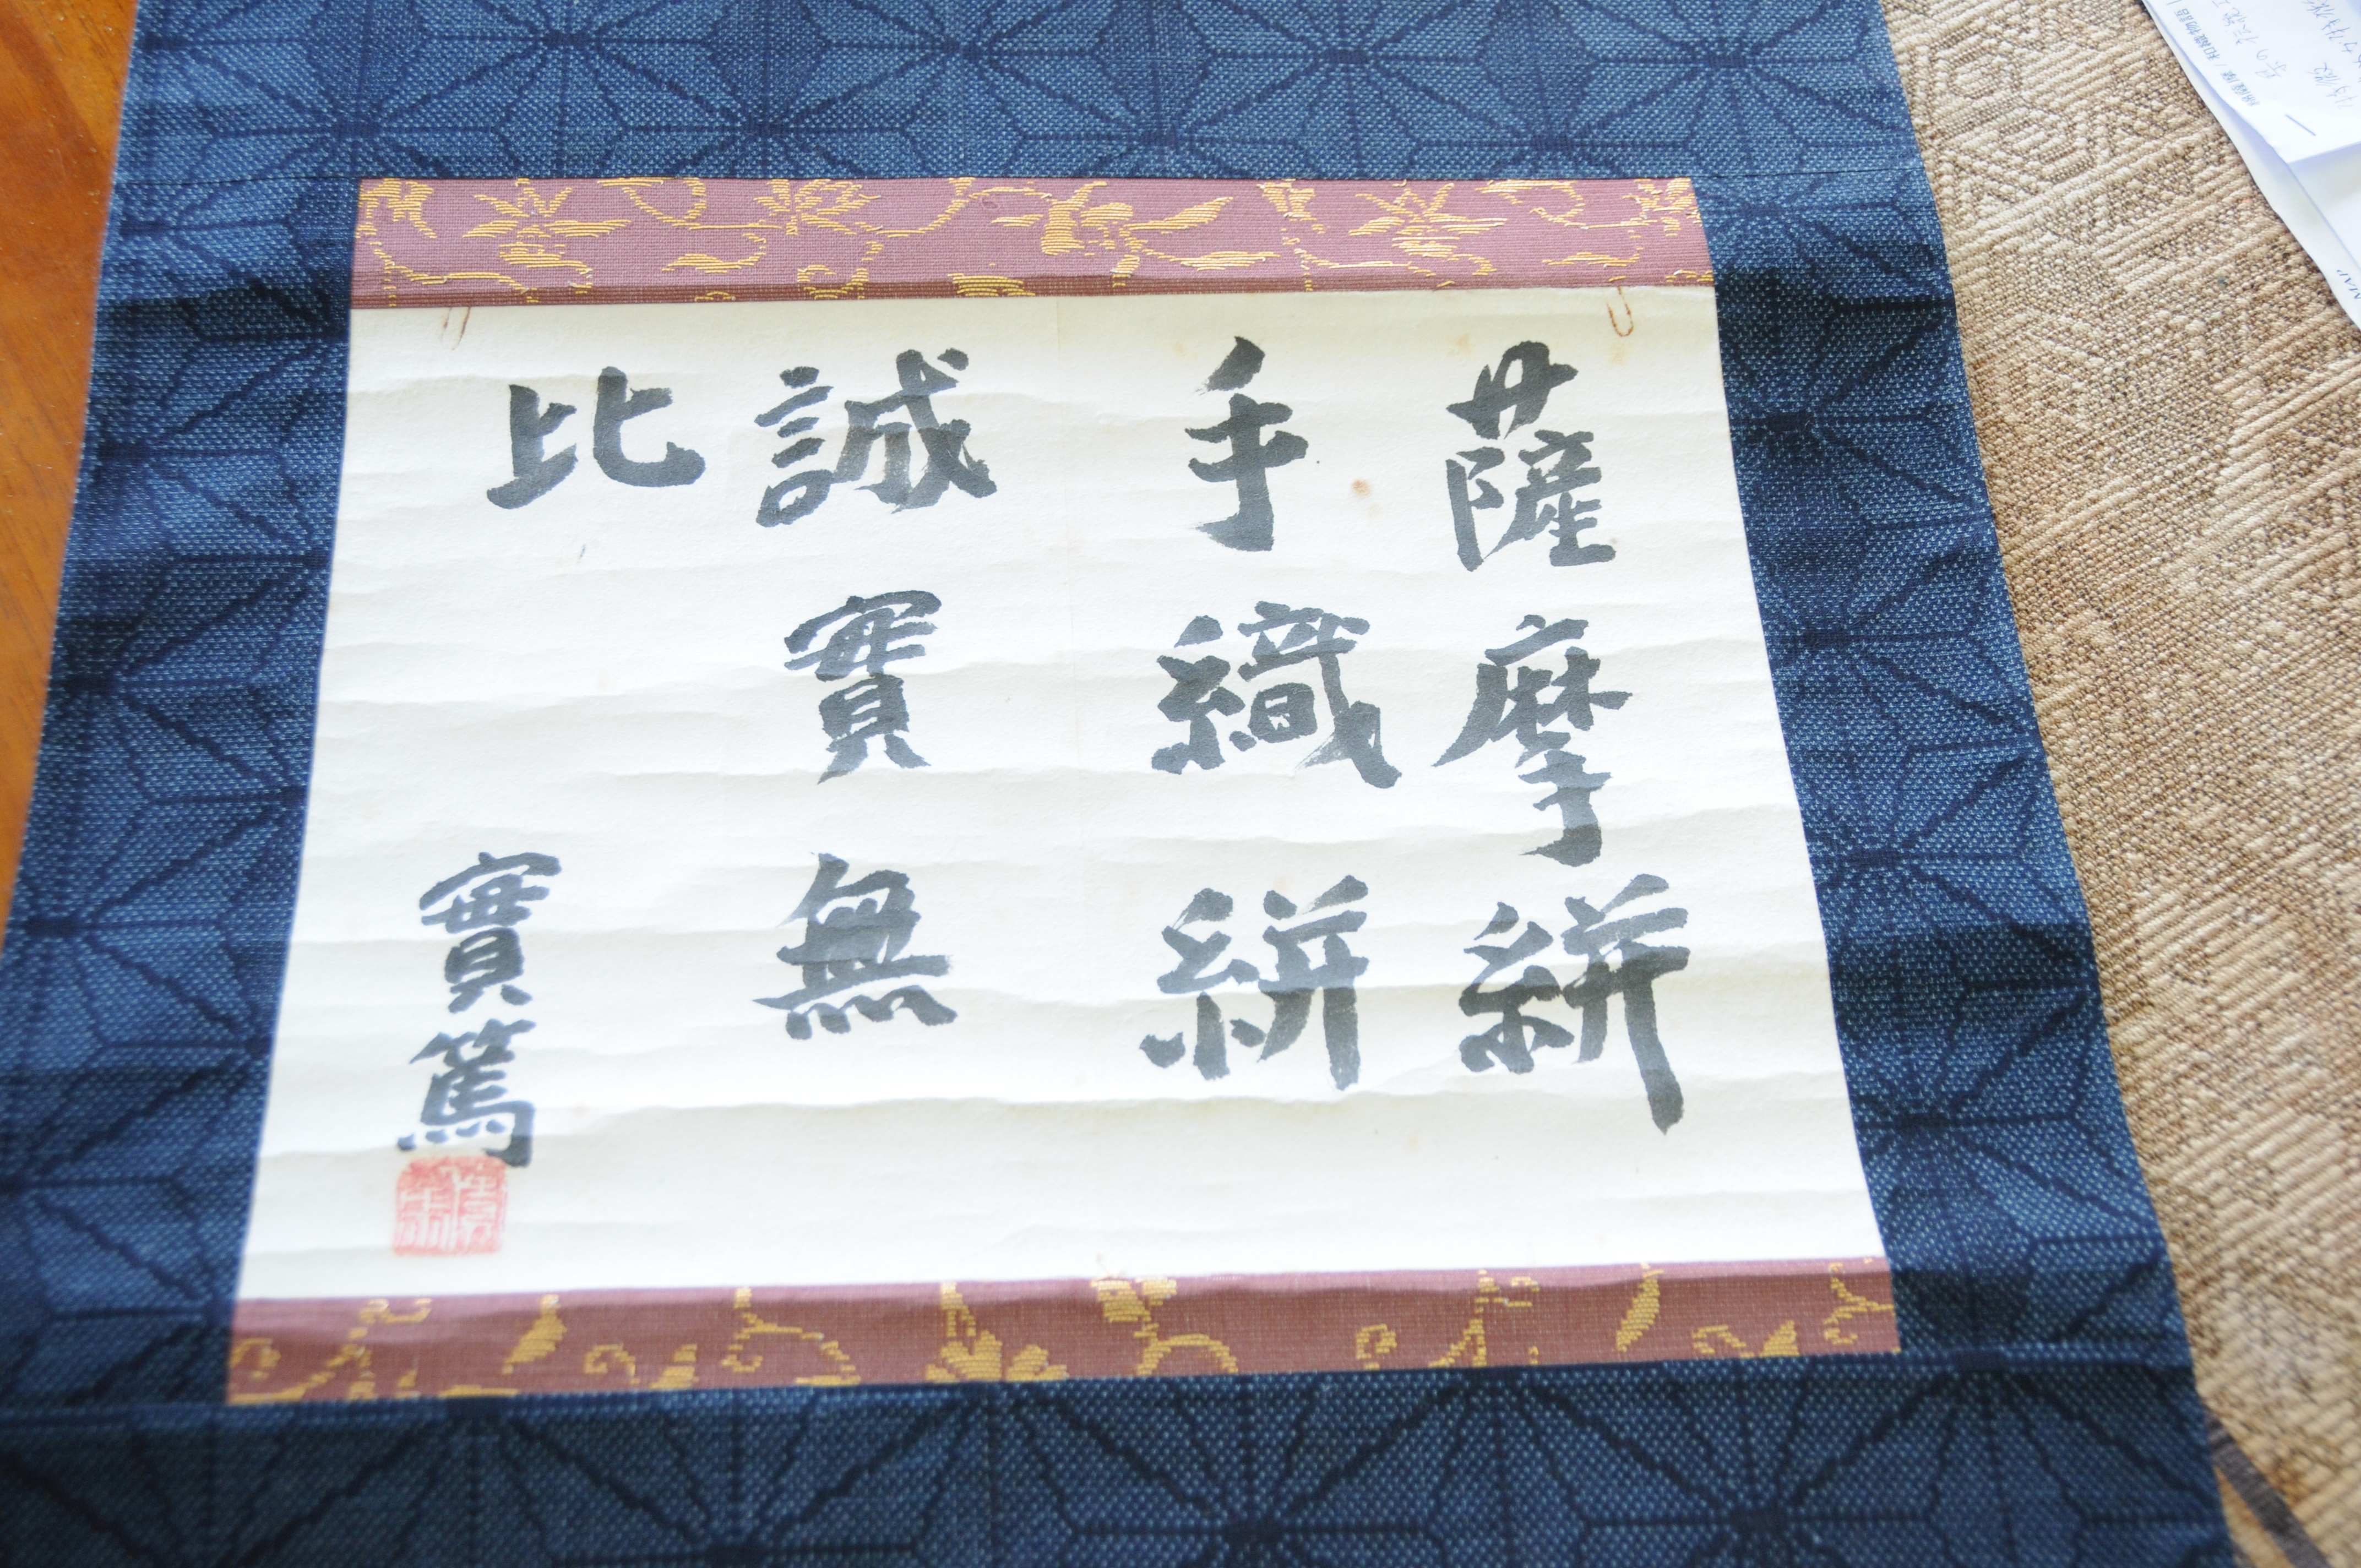 薩摩絣
手織絣
誠實無
比
實篤